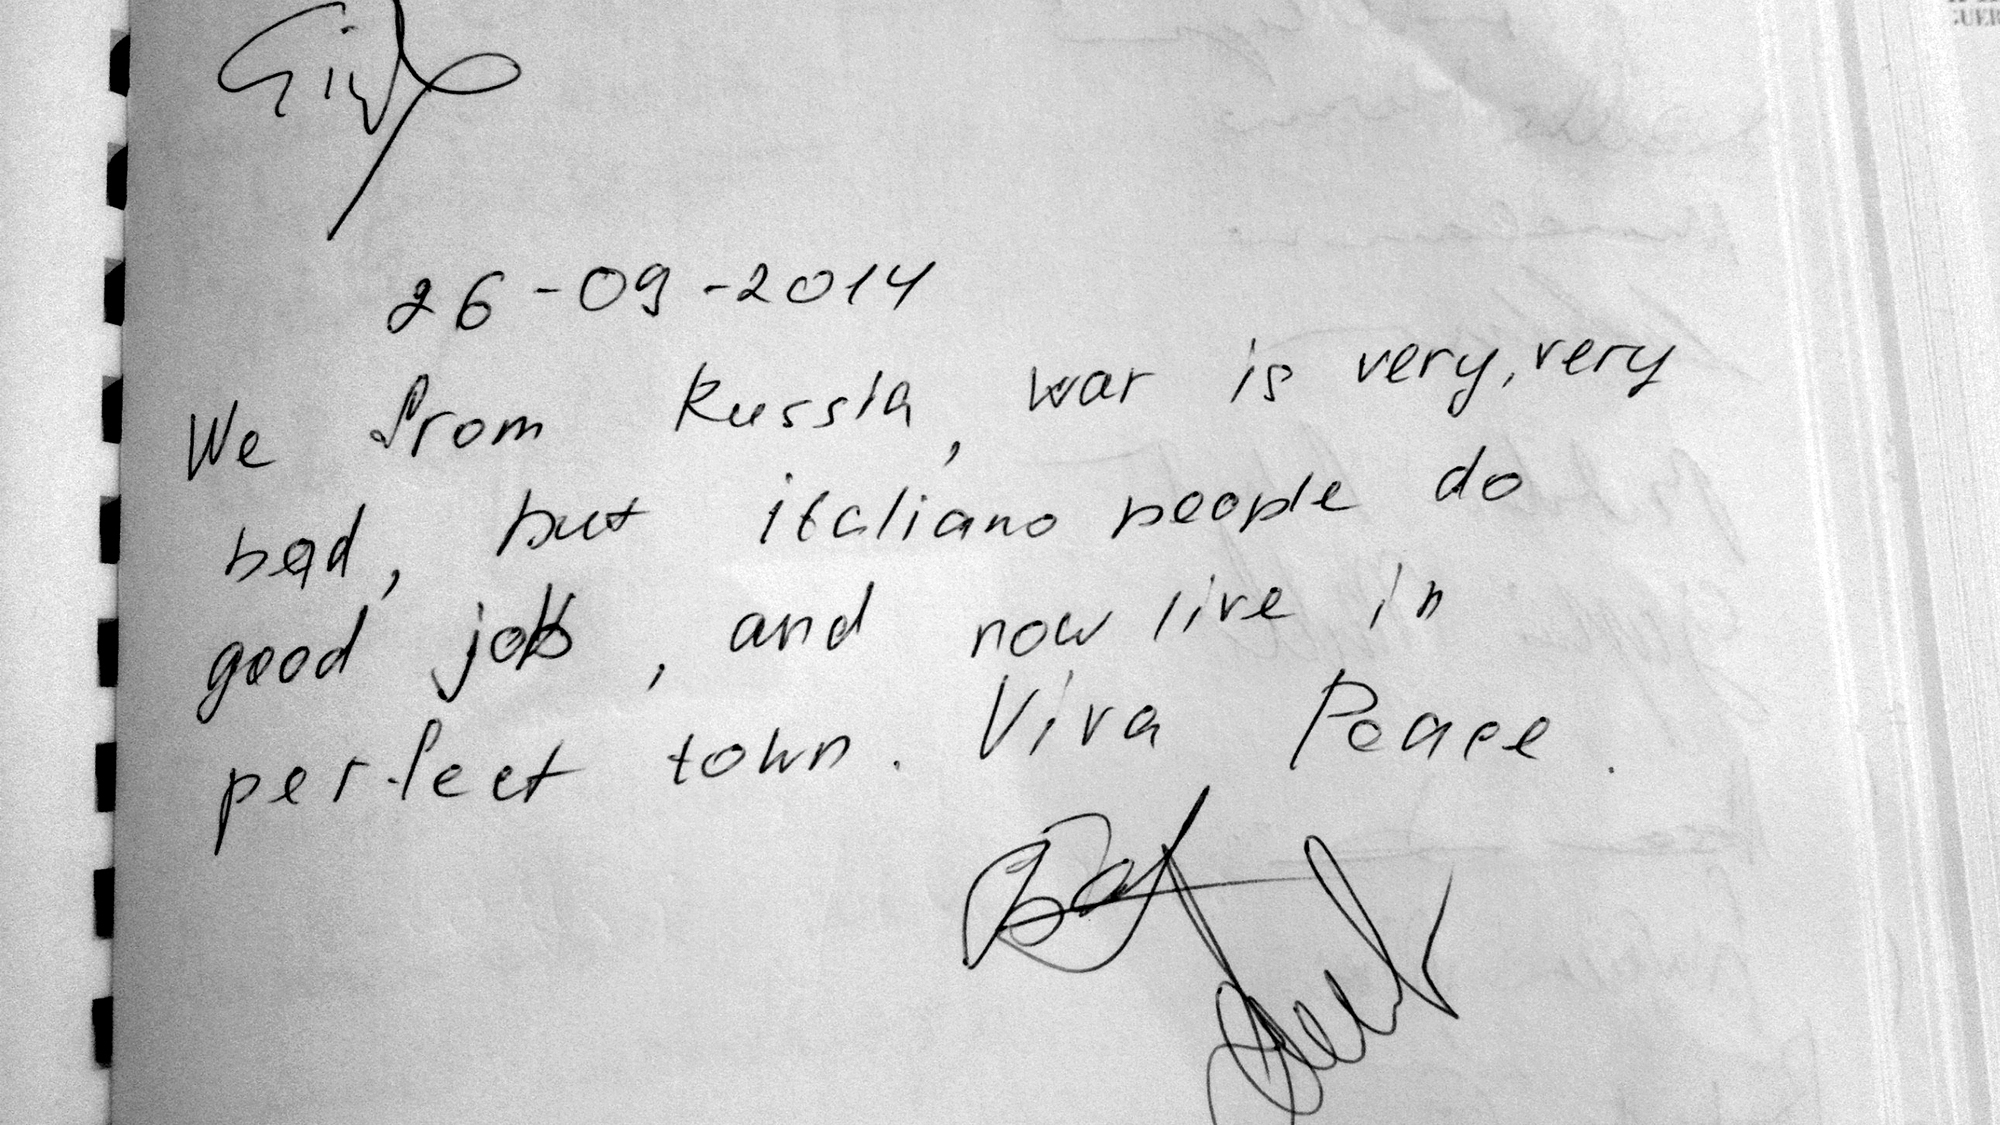 26-09-2014
We from Russia, war is very, very
bad, but italiano people do
good job, and now live in
perfect town. Viva Peace.